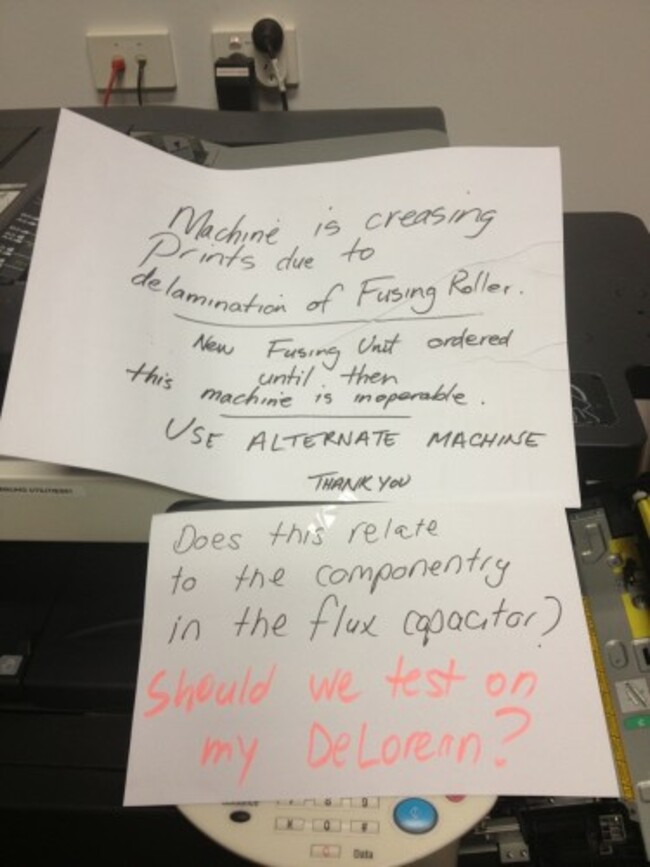 Machine is creasing
Prints due to
delamination of Fusing Roller.
New Fusing Unit ordered
until then
this machine is inoperable.
USE ALTERNATE MACHINE
THANK YOU
Does this relate
to the componentry
in the flux capacitor?
Should we test on
my DeLorean?
Data